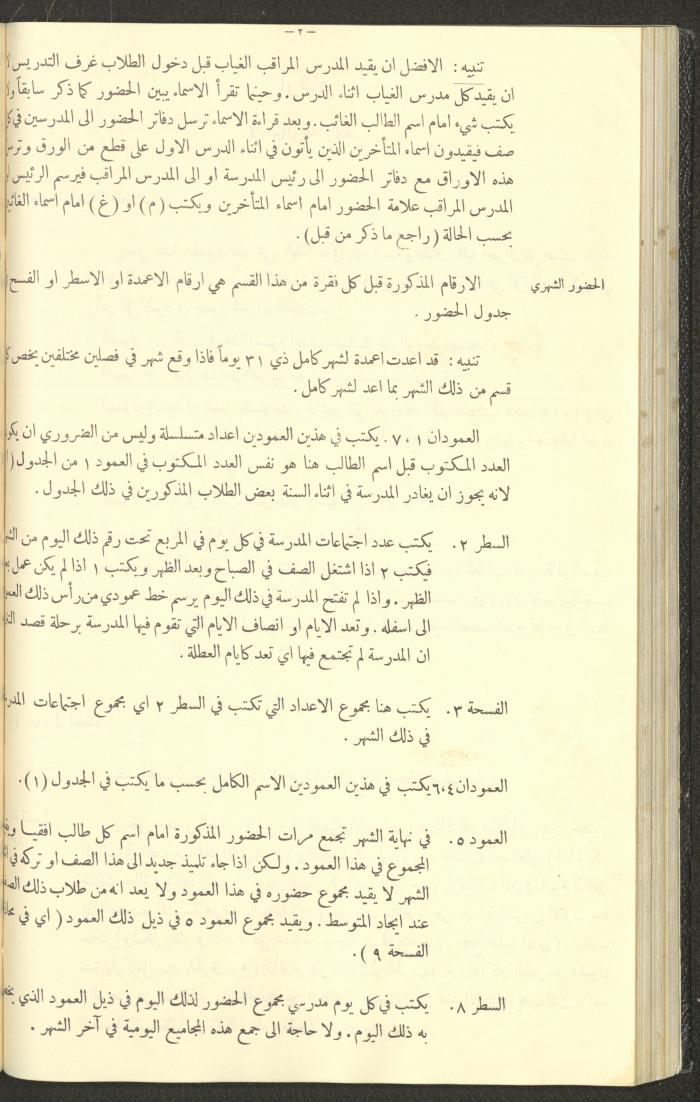 — ٢ —
تنبيه : الافضل ان يقيد المدرس المراقب الغياب قبل دخول الطلاب غرف التدريس
ان يقيد كل مدرس الغياب اثناء الدرس . وحينما تقرأ الاسماء يبين الحضور كما ذكر سابقاً
يكتب شيء امام اسم الطالب الغائب . وبعد قراءة الاسماء ترسل دفاتر الحضور الى المدرسين في
صف فيقيدون اسماء المتأخرين الذين يأتون في اثناء الدرس الاول على قطع من الورق
هذه الاوراق مع دفاتر الحضور الى رئيس المدرسة او الى المدرس المراقب فيرسم الرئيس
المدرس المراقب علامة الحضور امام اسماء المتأخرين ويكتب ( م ) او ( غ ) امام اسماء
بحسب الحالة ( راجع ما ذكر من قبل ) .
الحضور الشهري الارقام المذكورة قبل كل فقرة من هذا القسم هي ارقام الاعمدة او الاسطر او الفسح
جدول الحضور .
تنبيه : قد اعدت اعمدة لشهر كامل ذي ٣١ يوماً فاذا وقع شهر في فصلين مختلفين يخص
قسم من ذلك الشهر بما اعد لشهر كامل .
العمودان ١ ، ٧ . يكتب في هذين العمودين اعداد متسلسلة وليس من الضروري ان
العدد المكتوب قبل اسم الطالب هنا هو نفس العدد المكتوب في العمود ١ من الجدول
لانه يجوز ان يغادر المدرسة في اثناء السنة بعض الطلاب المذكورين في ذلك الجدول .
السطر ٢ . يكتب عدد اجتماعات المدرسة في كل يوم في المربع تحت رقم ذلك اليوم من
فيكتب ٢ اذا اشتغل الصف في الصباح وبعد الظهر ويكتب ١ اذا لم يكن عمل
الظهر . واذا لم تفتح المدرسة في ذلك اليوم يرسم خط عمودي من رأس ذلك
الى اسفله . وتعد الايام او انصاف الايام التي تقوم فيها المدرسة برحلة قصد
ان المدرسة لم تجتمع فيها اي تعد كايام العطلة .
الفسحة ٣ . يكتب هنا مجموع الاعداد التي تكتب في السطر ٢ اي مجموع اجتماعات
في ذلك الشهر .
العمودان ٤ ، ٦ يكتب في هذين العمودين الاسم الكامل بحسب ما يكتب في الجدول ( ١ ) .
العمود ٥ . في نهاية الشهر تجمع مرات الحضور المذكورة امام اسم كل طالب افقيا
المجموع في هذا العمود . ولكن اذا جاء تلميذ جديد الى هذا الصف او تركه في
الشهر لا يقيد مجموع حضوره في هذا العمود ولا يعد انه من طلاب ذلك
عند ايجاد المتوسط . ويقيد مجموع العمود ٥ في ذيل ذلك العمود ( اي في
الفسحة ٩ ) .
السطر ٨ . يكتب في كل يوم مدرسي مجموع الحضور لذلك اليوم في ذيل العمود الذي
به ذلك اليوم . ولا حاجة الى جمع هذه المجاميع اليومية في آخر الشهر .